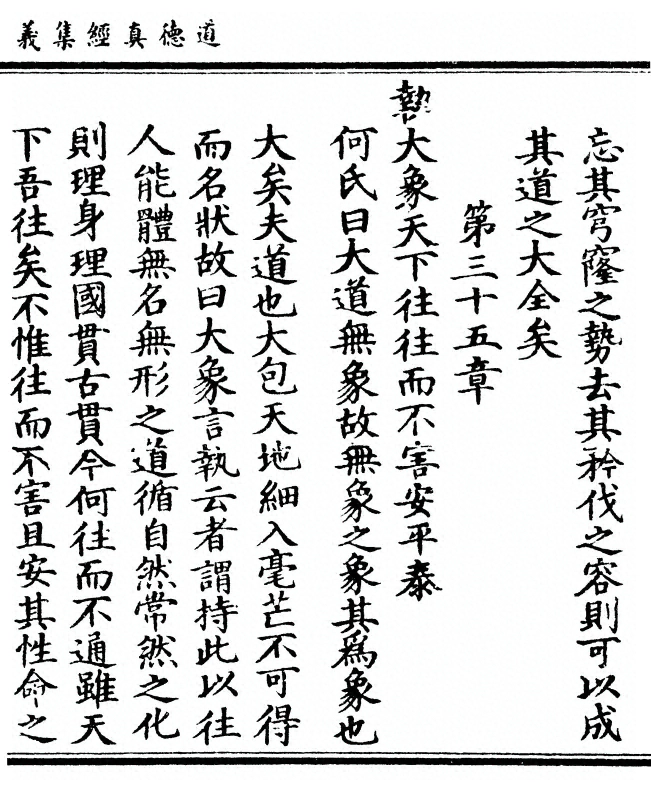 道德真經集義
忘其穹窿之勢去其矜伐之容則可以成
其道之大全矣
第三十五章
執大象天下往往而不害安平泰
何氏曰大道無象故無象之象其爲象也
大矣夫道也大包天地細入毫芒不可得
而名狀故曰大象言執云者謂持此以往
人能體無名無形之道循自然常然之化
則理身理國貫古貫今何往而不通雖天
下吾往矣不惟往而不害且安其性命之